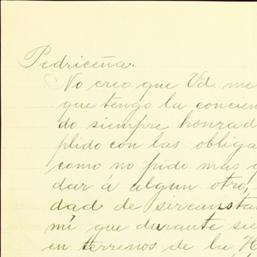 Pedriceña.
No creo que Vd me
que tengo la concien
do siempre honrad
plido con las obliga
como no pido mas q
dar á algun otro,
dad de sircunstan
mi que durante sie
en terrenos de la H